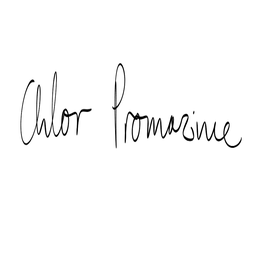 Chlor Promazine